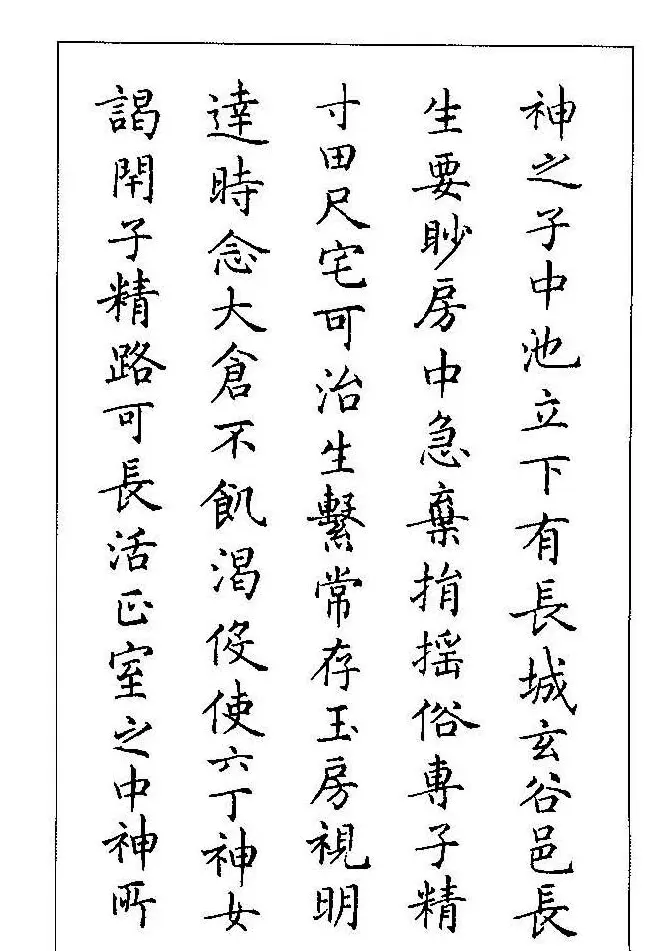 神之子中池立下有長城玄谷邑長
生要眇房中急棄捐搖俗専子精
寸田尺宅可治生繫常存玉房視明
達時念大倉不飢渴役使六丁神女
謁閇子精路可長活正室之中神所